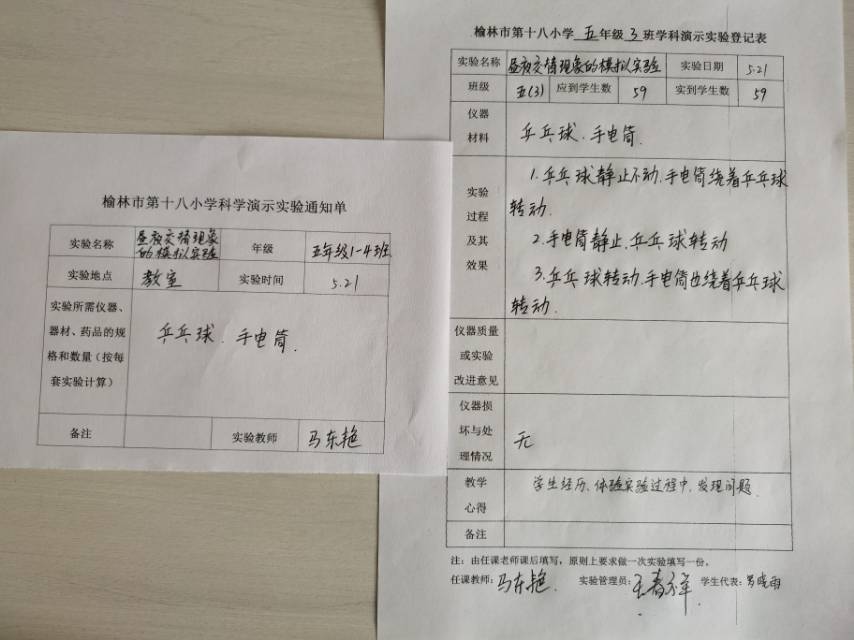 榆林市第十八小学科学演示实验通知单
实验名称 昼夜交替现象的模拟实验 年级 五年级1-4班
实验地点 教室 实验时间 5.21
实验所需仪器、
器材、药品的规
格和数量（按每
套实验计算）
乒乓球、手电筒.
备注 实验教师 马东艳
榆林市第十八小学 五 年级 3 班学科演示实验登记表
实验名称 昼夜交替现象的模拟实验 实验日期 5.21
班级 五(3) 应到学生数 59 实到学生数 59
仪器
材料
乒乓球、手电筒.
实验
过程
及其
效果
1.乒乓球静止不动.手电筒绕着乒乓球
转动.
2.手电筒静止.乒乓球转动
3.乒乓球转动.手电筒也绕着乒乓球
转动.
仪器质量
或实验
改进意见
仪器损
坏与处
理情况
无
教学
心得
学生经历、体验实验过程中,发现问题.
备注
注：由任课老师课后填写，原则上要求做一次实验填写一份。
任课教师: 马东艳. 实验管理员: 学生代表: